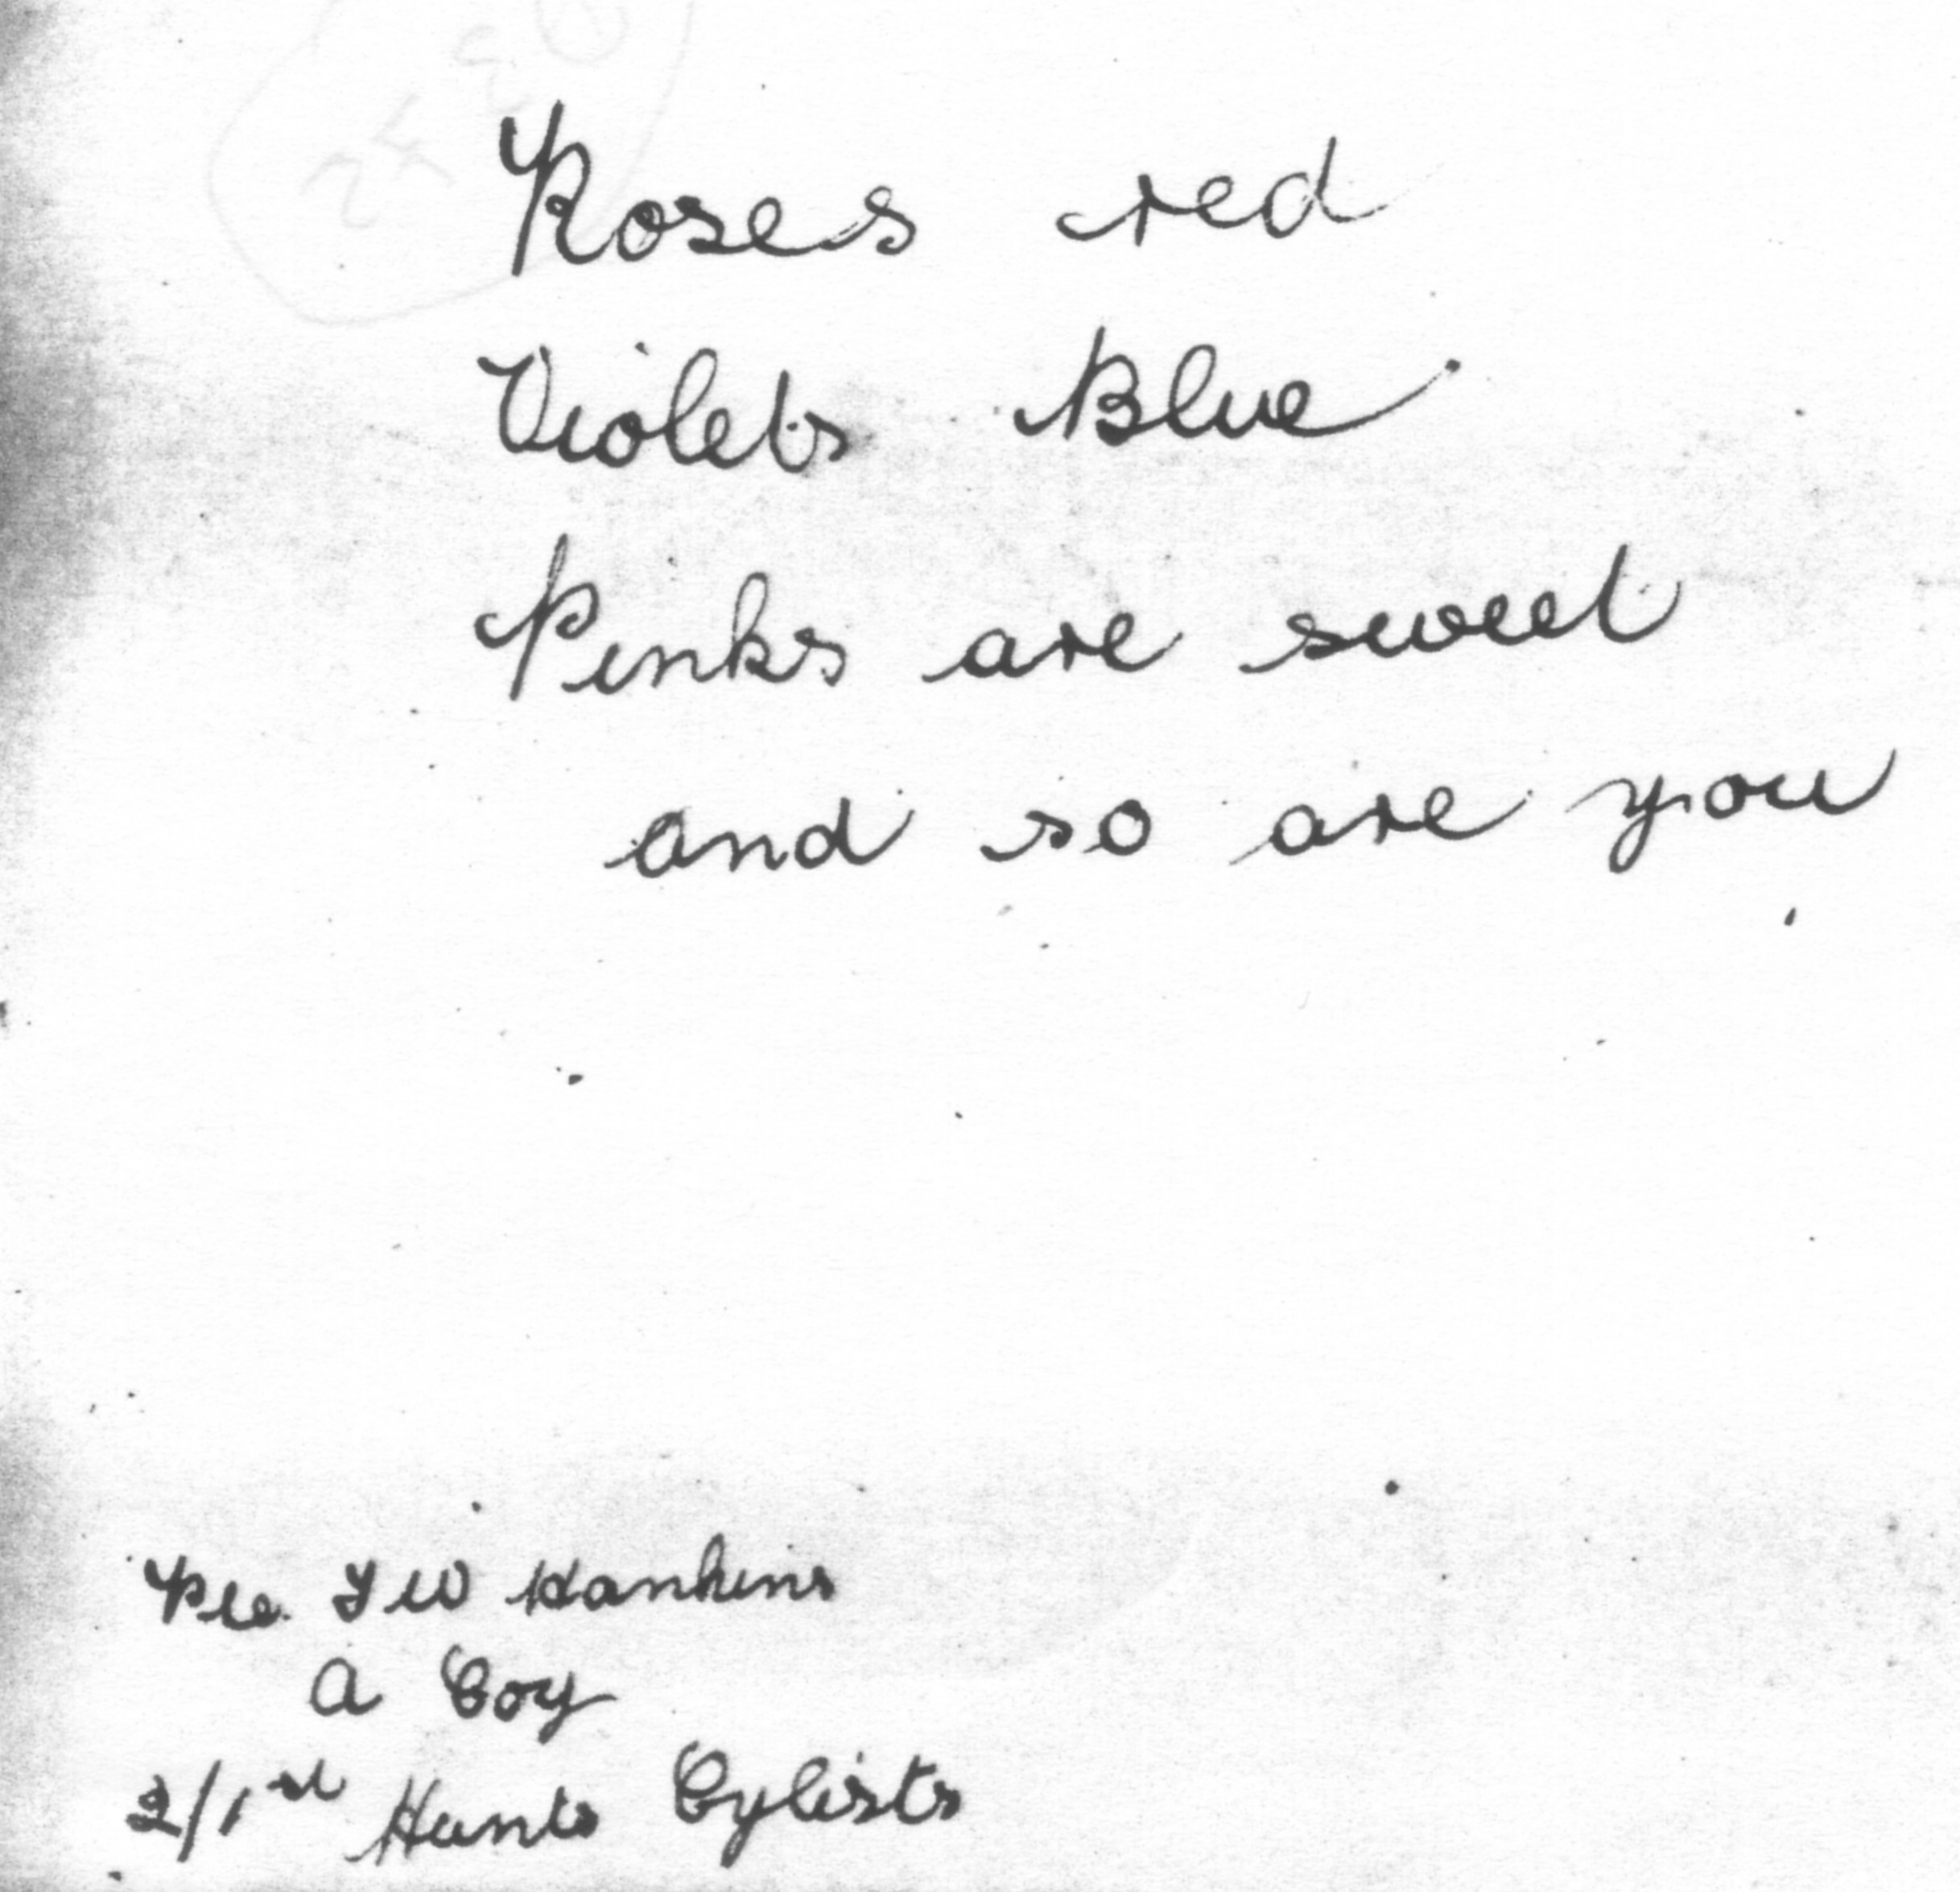 Roses red
Violets Blue
Pinks are sweet
and so are you
Pte. F W Hankins
A Coy
2/1st Hunts Cylists